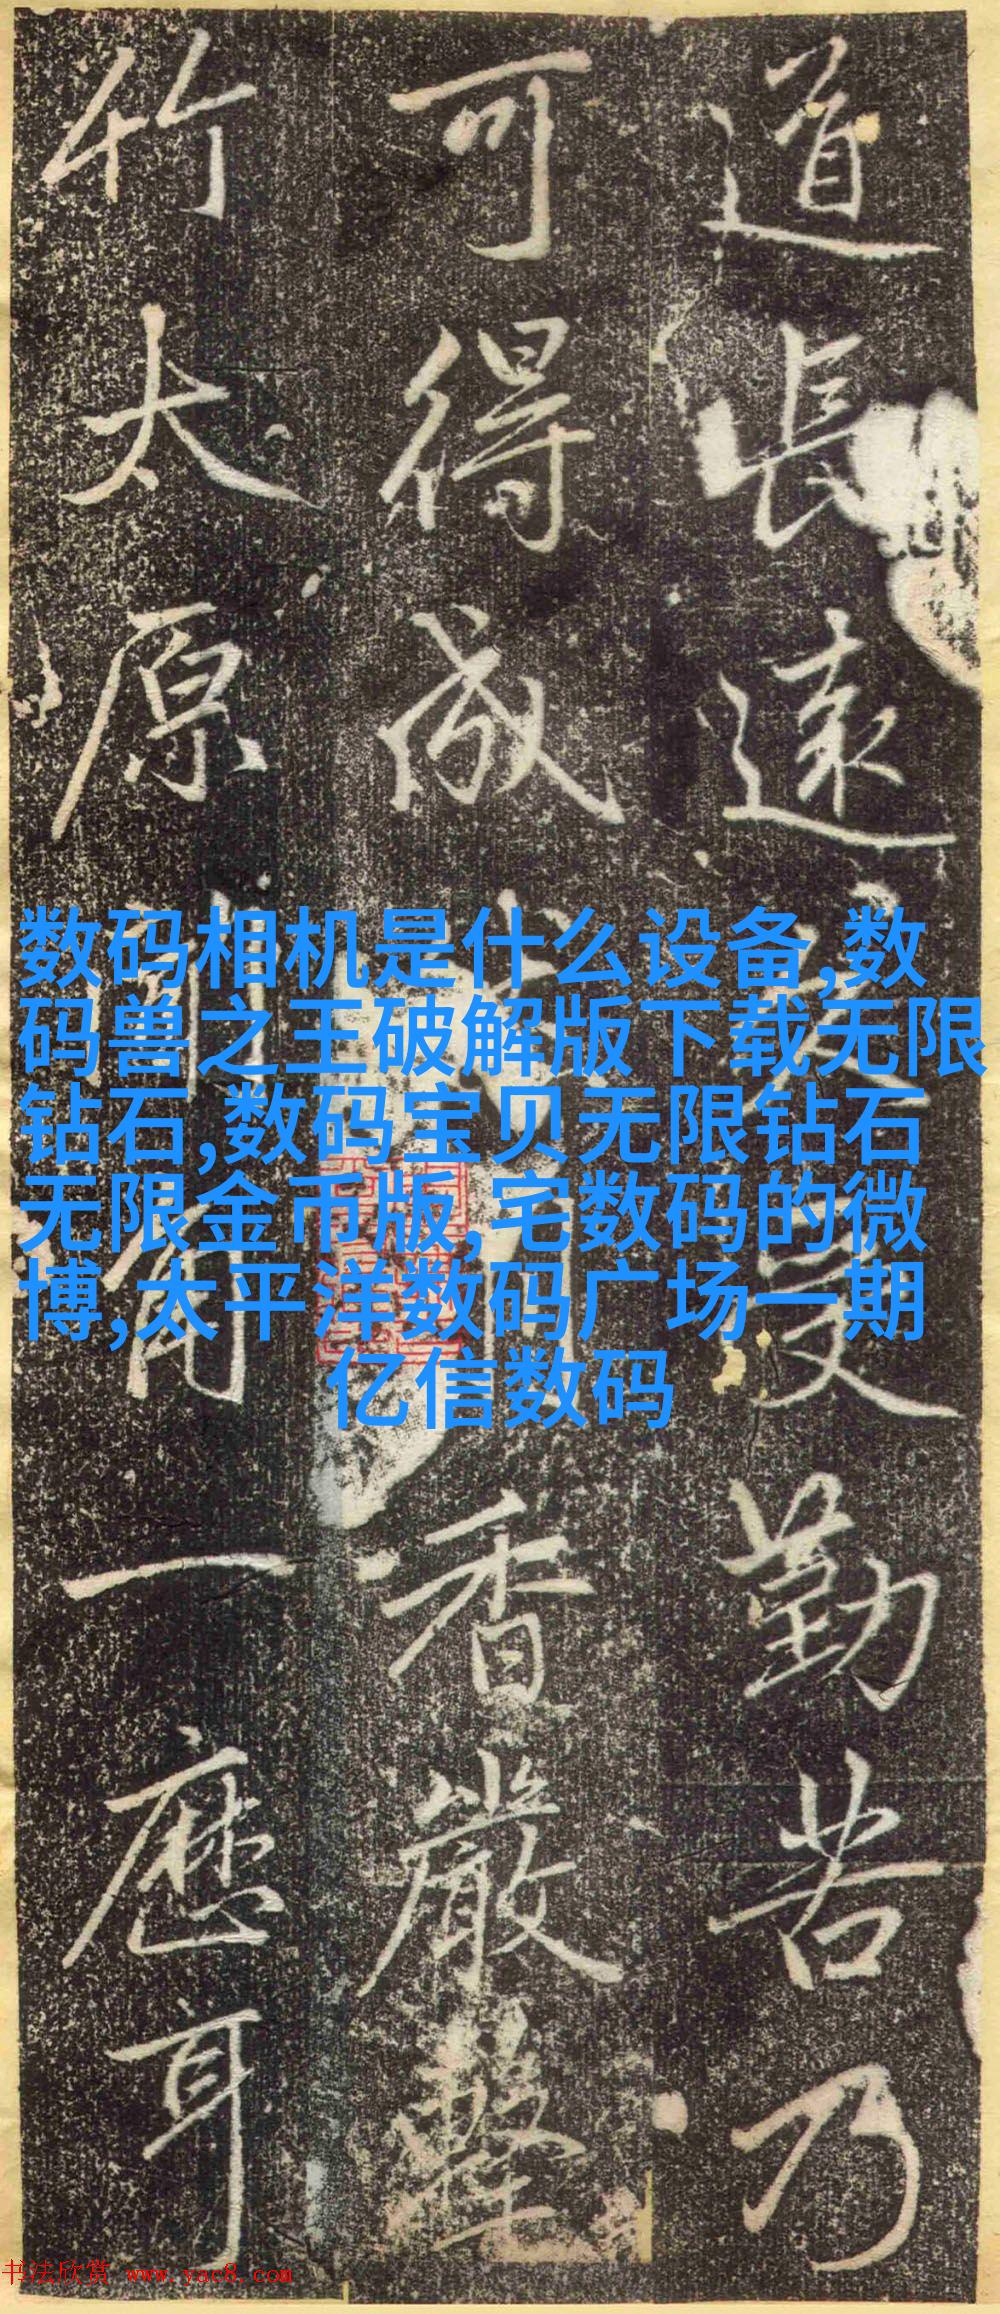 道長遠受勤苦乃
可得成香嚴擊
竹太原聞角一應耳
数码相机是什么设备,数
码兽之王破解版下载无限
钻石,数码宝贝无限钻石
无限金币版,宅数码的微
博,太平洋数码广场一期
亿信数码
书法欣赏 www.yac8.com